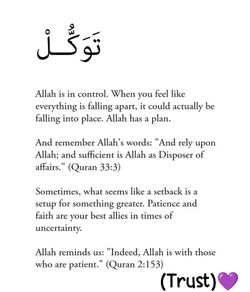 تَوَكُّـــلْ
Allah is in control. When you feel like
everything is falling apart, it could actually be
falling into place. Allah has a plan.
And remember Allah's words: "And rely upon
Allah; and sufficient is Allah as Disposer of
affairs." (Quran 33:3)
Sometimes, what seems like a setback is a
setup for something greater. Patience and
faith are your best allies in times of
uncertainty.
Allah reminds us: "Indeed, Allah is with those
who are patient." (Quran 2:153)
(Trust)💜